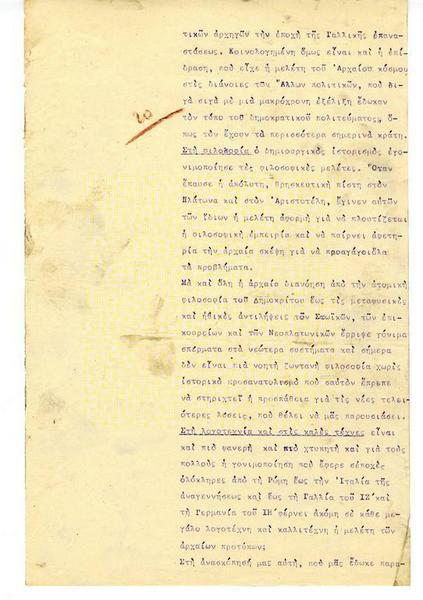 τικῶν ἀρχηγῶν τὴν ἐποχὴ τῆς Γαλλικῆς ἐπανα-
στάσεως. Κοινολογημένη ὅμως εἶναι καὶ ἡ ἐπί-
δραση, ποὺ εἶχε ἡ μελέτη τοῦ Ἀρχαίου κόσμου
στὶς διάνοιες τῶν Ἄλλων πολιτικῶν, ποὺ σι-
γὰ σιγὰ μὲ μιὰ μακρόχρονη ἐξέλιξη ἔδωκαν
τὸν τύπο τοῦ δημοκρατικοῦ πολιτεύματος, ὅ-
πως τὸν ἔχουν τὰ περισσότερα σημερινὰ κράτη.
20
Στὴ φιλοσοφία ὁ δημιουργικὸς ἱστορισμὸς ἐγο-
νιμοποίησε τὶς φιλοσοφικὲς μελέτες. Ὅταν
ἔπαυσε ἡ ἀπόλυτη, θρησκευτικὴ πίστη στὸν
Πλάτωνα καὶ στὸν Ἀριστοτέλη, ἔγινεν αὐτῶν
τῶν ἴδιων ἡ μελέτη ἀφορμὴ γιὰ νὰ πλουτίζεται
ἡ φιλοσοφικὴ ἐμπειρία καὶ νὰ παίρνει ἀφετη-
ρία τὴν ἀρχαία σκέψη γιὰ νὰ
τὰ προβλήματα.
Μὰ καὶ ὅλη ἡ ἀρχαία διανόηση ἀπὸ τὴν ἀτομικὴ
φιλοσοφία τοῦ Δημοκρίτου ἕως τὶς μεταφυσικὲς
καὶ ἠθικὲς ἀντιλήψεις τῶν Στωϊκῶν, τῶν ἐπι-
κουρείων καὶ τῶν Νεοπλατωνικῶν ἔρριψε γόνιμα
σπέρματα στὰ νεώτερα συστήματα καὶ σήμερα
δὲν εἶναι πιὰ νοητὴ ζωντανὴ φιλοσοφία χωρὶς
ἱστορικὸ προσανατολισμὸ ποὺ σαὐτὸν ἔπρεπε
νὰ στηριχτεῖ ἡ προσπάθεια γιὰ τὶς νέες τελει-
ότερες λύσεις, ποὺ θέλει νὰ μᾶς παρουσιάσει.
Στὴ λογοτεχνία καὶ στὶς καλὲς τέχνες εἶναι
καὶ πιὸ φανερὴ καὶ πιὸ χτυπητὴ καὶ γιὰ τοὺς
πολλοὺς ἡ γονιμοποίηση ποὺ ἔφερε σὲποχὲς
ὁλόκληρες ἀπὸ τὴ Ρώμη ἕως τὴν Ἰταλία τῆς
ἀναγεννήσεως καὶ ἕως τὴ Γαλλία τοῦ ΙΖ΄ καὶ
τὴ Γερμανία τοῦ ΙΗ΄ φέρνει ἀκόμη σὲ κάθε με-
γάλο λογοτέχνη καὶ καλλιτέχνη ἡ μελέτη τῶν
ἀρχαίων προτύπων;
Στὴ ἀνασκόπησή μας αὐτή, ποὺ μᾶς ἔδωκε παρα-